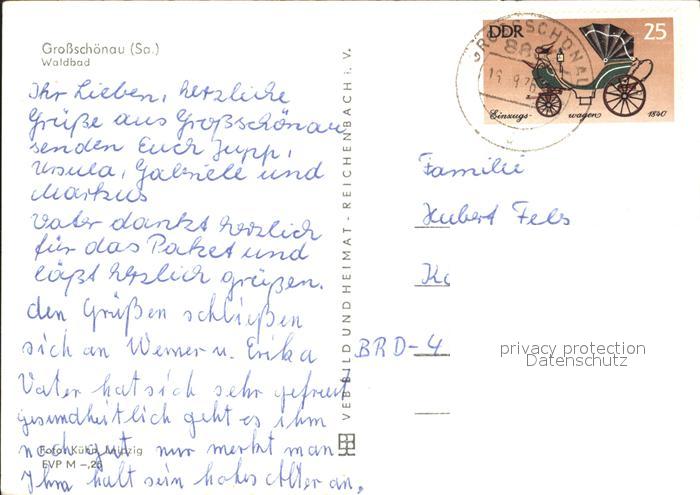 Großschönau (Sa.)
Waldbad
Ihr Lieben, herzliche
Grüße aus Großschönau
senden Euch Jupp,
Ursula, Gabriele und
Markus
Vater dankt herzlich
für das Paket und
läßt herzlich grüßen.
den Grüßen schließen
sich an Werner u. Erika
Vater hat sich sehr gefreut
gesundheitlich geht es ihm
noch gut nur merkt man
Foto: Kühn,
EVP M –,20
Ihm halt sein hohes Alter an.
VEB BILD UND HEIMAT - REICHENBACH i. V.
DDR 25
Einzugs- wagen 1840
GROSSSCHÖNAU
Familie
Hubert Fels
BRD-4
privacy protection
Datenschutz